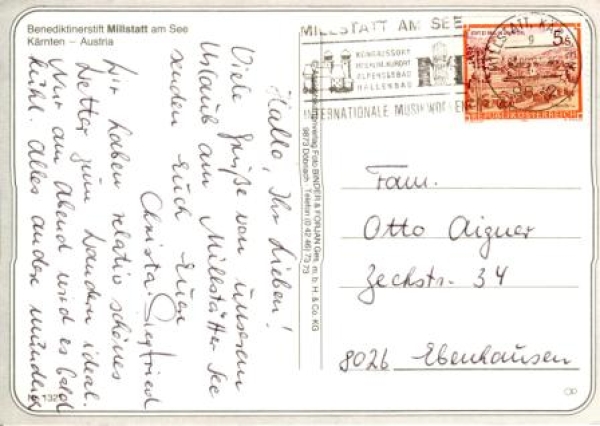 Benediktinerstift Millstatt am See
Kärnten – Austria
Hallo, Ihr Lieben!
Viele Grüße von unserem
Urlaub am Millstätter See
senden Euch Euer
Christa Siegfried
Wir haben relativ schönes
Wetter zum Wandern ideal.
Nur am Abend wird es bald
kühl. Alles andere
MILLSTATT AM SEE
KONGRESSORT
ALPENSEEBAD
HALLENBAD
INTERNATIONALE MUSIKWOCHEN
5
REPUBLIK ÖSTERREICH
Foto BINDER & FORJAN Ges. m. b. H. & Co. KG
9873 Döbriach · Telefon (0 42 46) 73 73
Fam.
Otto Aigner
Zechstr. 34
8026 Ebenhausen